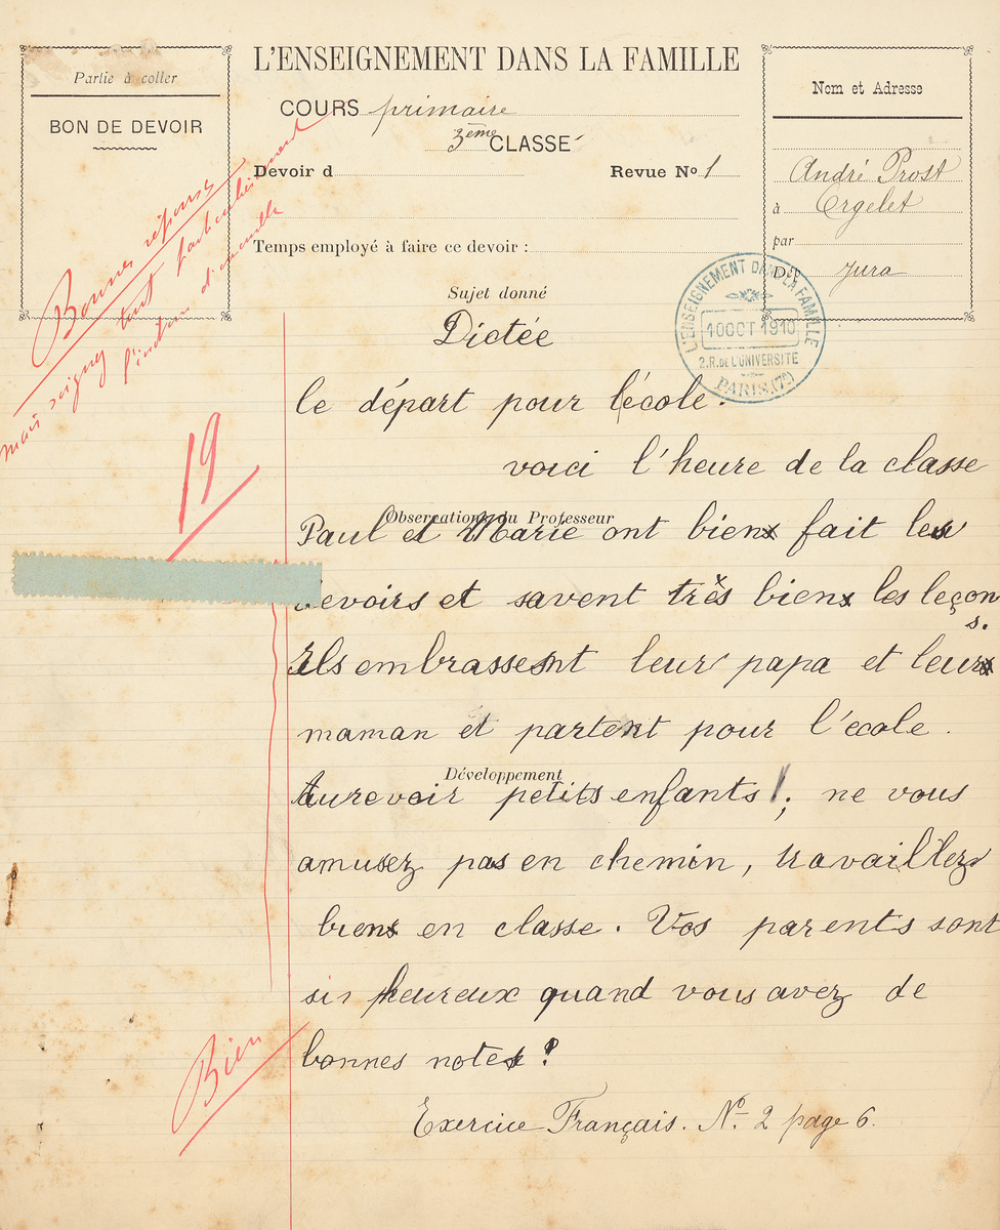 Partie à coller
BON DE DEVOIR
L'ENSEIGNEMENT DANS LA FAMILLE
COURS primaire
3ème CLASSE
Devoir d
Revue No 1
Temps employé à faire ce devoir :
Nom et Adresse
André Prost
à Orgelet
par
Dt Jura
Bonnes réponses
mais soignez tout particulièrement
19
L'ENSEIGNEMENT DANS LA FAMILLE
10 OCT 1910
2.R. DE L'UNIVERSITÉ
PARIS.(7e)
Sujet donné
Dictée
le départ pour l'école.
voici l'heure de la classe
Observations du Professeur
Paul et Marie ont bien fait les
devoirs et savent très bien les leçon
s.
Ils embrassent leur papa et leur
maman et partent pour l'école.
Développement
Aurevoir petits enfants !; ne vous
amusez pas en chemin, travaillez
bien en classe. Vos parents sont
si heureux quand vous avez de
bonnes notes !
Bien
Exercice Français. No 2 page 6.